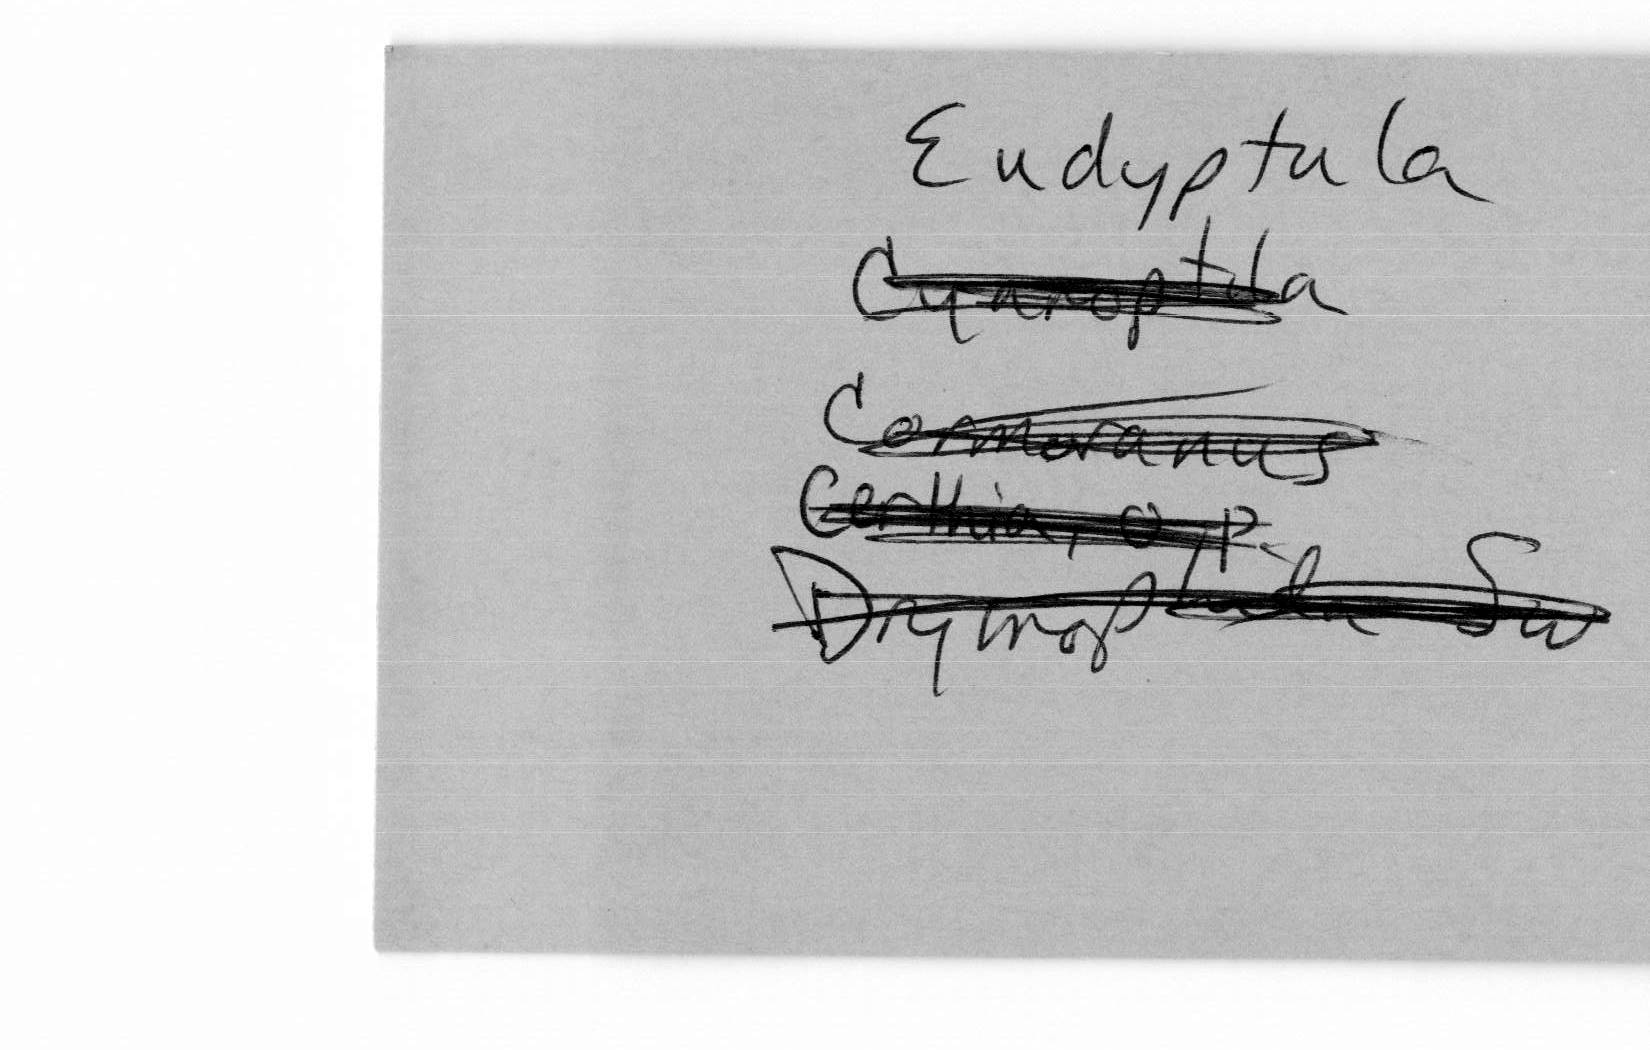 Eudyptula
Cyanoptila
Cormoranus
Certhia, O P.
Drymoptila Sw